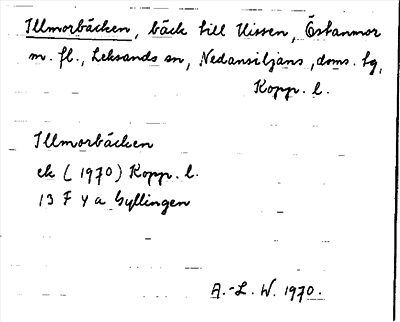 Illmorbäcken, bäck till Uissen, Östanmor
m. fl., Leksands sn, Nedansiljans, doms. tg,
Kopp. l.
Illmorbäcken
ek (1970) Kopp. l.
13 F 4 a Gyllingen
A.-L. W. 1970.